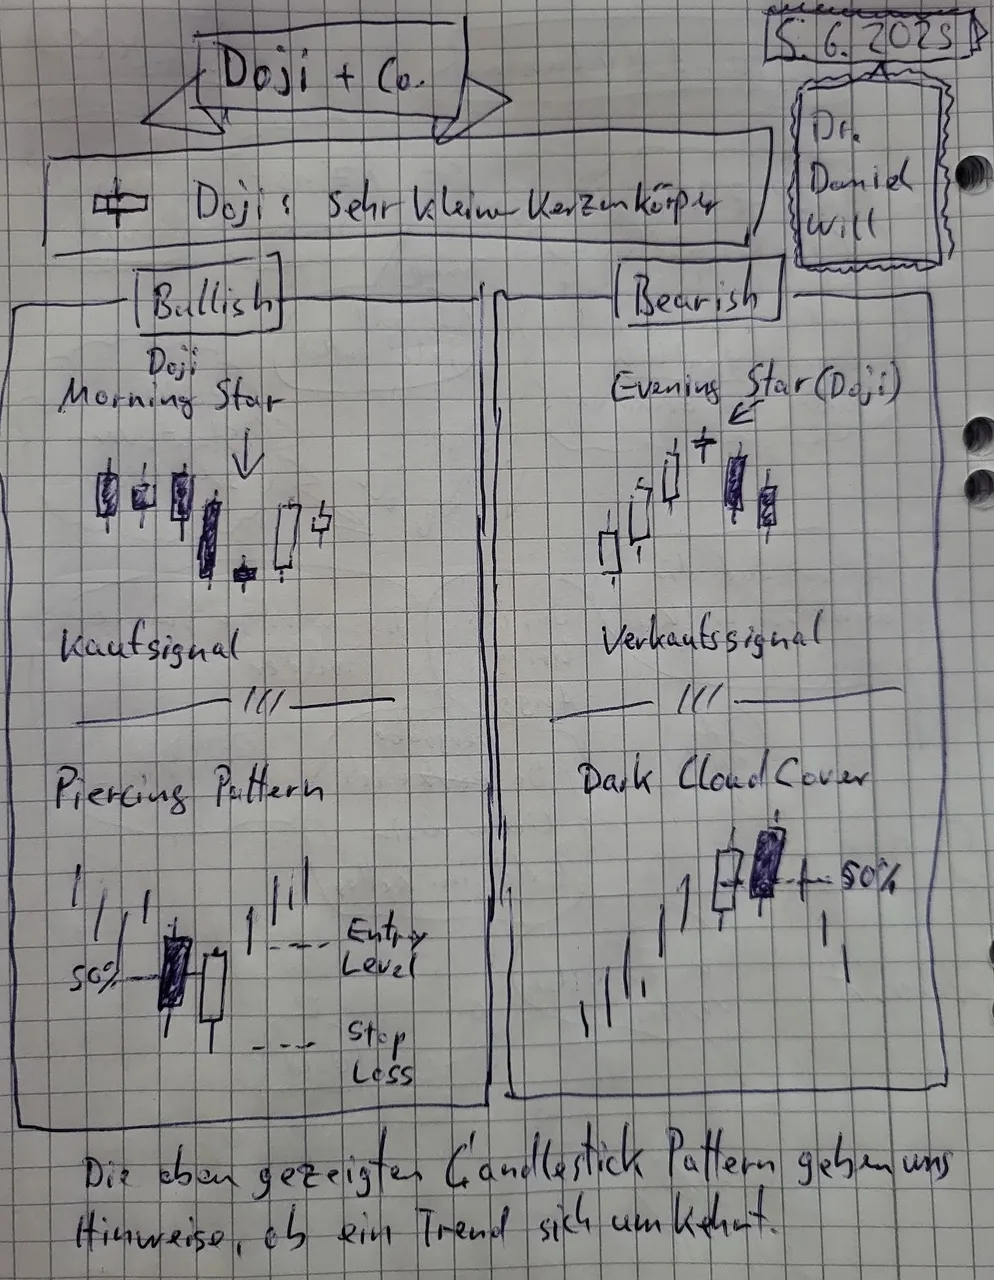 Doji + Co.
5. 6. 2025
Dr.
Daniel
Will
Doji: Sehr kleiner Kerzenkörper
Bullish
Doji
Morning Star
Kaufsignal
Piercing Pattern
50%
Entry
Level
Stop
Loss
Bearish
Evening Star (Doji)
Verkaufssignal
Dark Cloud Cover
50%
Die eben gezeigten Candlestick Pattern geben uns
Hinweise, ob ein Trend sich umkehrt.